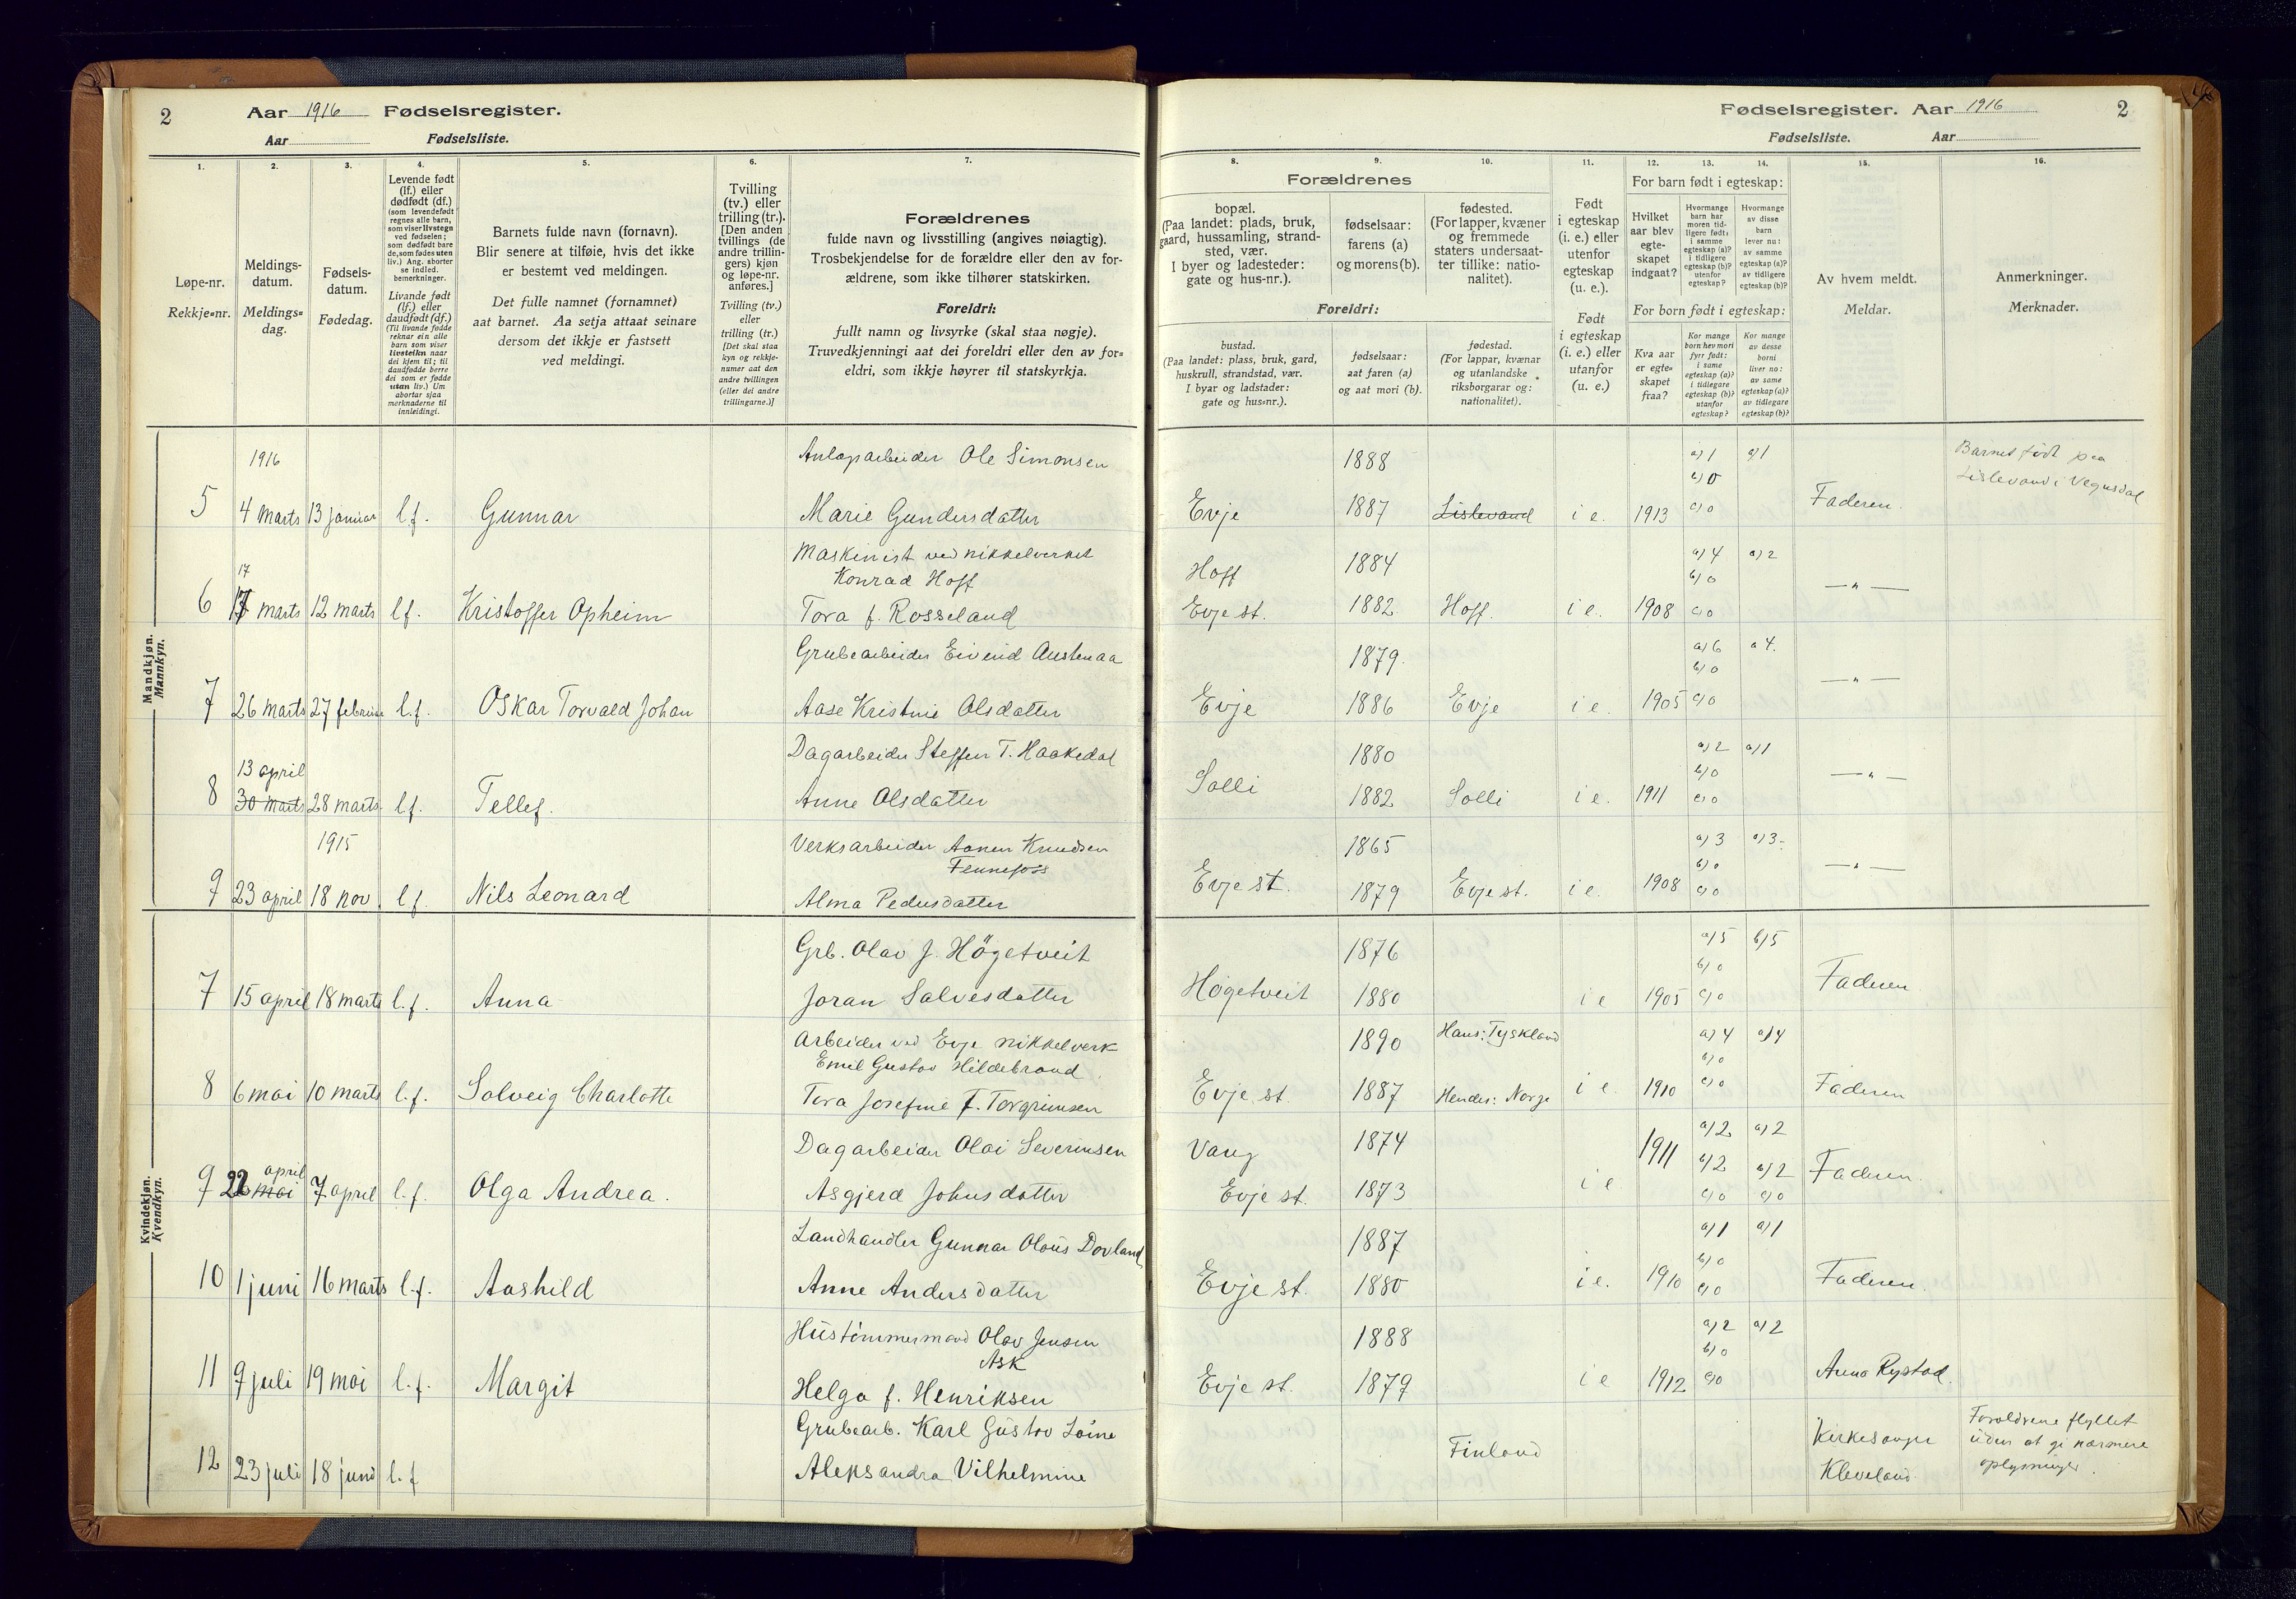 2
Aar 1916 Fødselsregister.
Aar Fødselsliste.
1.
2.
3.
4.
5.
6.
7.
Løpe-nr.
Rekkje=nr.
Meldings-
datum.
Meldings=
dag.
Fødsels-
datum.
Fødedag.
Levende født
(lf.) eller
dødfødt (df.)
(som levendefødt
regnes alle barn,
som viser livstegn
ved fødselen;
som dødfødt bare
de, som fødes uten
liv.) Ang. aborter
se indled.
bemerkninger.
Livande født
(lf.) eller
daudfødt (df.)
(Til livande fødde
reknar ein alle
barn som viser
livsteikn naar
dei kjem til; til
daudfødde berre
dei som er fødde
utan liv.) Um
abortar sjaa
merknaderne til
innleidingi.
Barnets fulde navn (fornavn).
Blir senere at tilføie, hvis det ikke
er bestemt ved meldingen.
Det fulle namnet (fornamnet)
aat barnet. Aa setja attaat seinare
dersom det ikkje er fastsett
ved meldingi.
Tvilling
(tv.) eller
trilling (tr.).
[Den anden
tvillings (de
andre trillin-
gers) kjøn
og løpe-nr.
anføres.]
Tvilling (tv.)
eller
trilling (tr.)
[Det skal staa
kyn og rekkje-
numer aat den
andre tvillingen
(eller dei andre
trillingarne.)]
Forældrenes
fulde navn og livsstilling (angives nøiagtig).
Trosbekjendelse for de forældre eller den av for-
ældrene, som ikke tilhører statskirken.
Foreldri:
fullt namn og livsyrke (skal staa nøgje).
Truvedkjenningi aat dei foreldri eller den av for=
eldri, som ikkje høyrer til statskyrkja.
Mandkjøn.
Mannkyn.
1916
Anlægsarbeider Ole Simonsen
5 4 marts 13 januar l.f. Gunnar Marie Gundersdatter
Maskinist ved nikkelverket
Konrad Hoff
17
6 17 marts 12 marts l.f. Kristoffer Opheim Tora f. Rosseland
Grubearbeider Eivind Austenaa
7 26 marts 27 februar l.f. Oskar Torvald Johan Aase Kristine Olsdatter
Dagarbeider Steffen T. Haakedal
13 april
8 30 marts 28 marts. l.f. Tellef. Anne Olsdatter
1915 Verksarbeider Aanen Knudsen
Fennefoss
9 23 april 18 nov. l.f. Nils Leonard Alma Pedersdatter
Kvindekjøn.
Kvendkyn.
Grb. Olav J. Högetveit
7 15 april 18 marts l.f. Anna Joran Salvesdatter
Arbeider ved Evje nikkelverk
Emil Gustav Hildebrand.
8 6 mai 10 marts l.f. Solveig Charlotte Tora Josefine f. Torgrimsen
Dagarbeider Olai Severinsen
april
9 22 mai 7 april l.f. Olga Andrea. Asgjerd Johnsdatter
Landhandler Gunnar Olaus Dovland
10 1 juni 16 marts l.f. Aashild Anne Andersdatter
Hustømmermand Olav Jensen
Ask
11 9 juli 19 mai l.f. Margit Helga f. Henriksen
Grubearb. Karl Gustav Laine
12 23 juli 18 juni l.f Aleksandra Vilhelmine
Fødselsregister. Aar 1916
2
Fødselsliste. Aar
8.
9.
10.
11.
12.
13.
14.
15.
16.
Forældrenes
bopæl.
(Paa landet: plads, bruk,
gaard, hussamling, strand-
sted, vær.
I byer og ladesteder:
gate og hus-nr.).
fødselsaar:
farens (a)
og morens (b).
fødested.
(For lapper, kvæner
og fremmede
staters undersaat-
ter tillike: natio-
nalitet).
Foreldri:
bustad.
(Paa landet: plass, bruk, gard,
huskrull, strandstad, vær.
I byar og ladstader:
gate og hus=nr.).
fødselsaar:
aat faren (a)
og aat mori (b).
fødestad.
(For lappar, kvænar
og utanlandske
riksborgarar og:
nationalitet).
Født
i egteskap
(i. e.) eller
utenfor
egteskap
(u. e.).
Født
i egteskap
(i. e.) eller
utanfor
(u. e.)
For barn født i egteskap:
Hvilket
aar blev
egte-
skapet
indgaat?
Hvormange
barn har
moren tid-
ligere født:
i samme
egteskap (a)?
i tidligere
egteskap (b)?
utenfor
egteskap?
Hvormange
av disse
barn
lever nu:
av samme
egteskap (a)?
av tidligere
egteskap (b)?
For born født i egteskap:
Kva aar
er egte=
skapet
fraa?
Kor mange
born hev mori
fyrr født:
i same
egteskap (a)?
i tidlegare
egteskap (b)?
utanfor
egteskap?
Kor mange
av desse
borni
liver no:
av same
egteskap (a)?
av tidlegare
egteskap (b)?
Av hvem meldt.
Meldar.
Anmerkninger.
Merknader.
1888 a) 1 a) 1 Barnet født paa
b) 0 Lislevand i Vegusdal
Evje 1887 Lislevand i e. 1913 c) 0 Faderen.
Hoff 1884 a) 4 a) 2
b) 0 — " —
Evje st. 1882 Hoff. i e. 1908 c) 0
1879. a) 6 a 4.
b) 0 — " —
Evje 1886 Evje i e. 1905 c) 0
1880 a) 2 a) 1
Solli b) 0 — " —
1882 Solli i e. 1911 c) 0
1865 a) 3 a) 3-
b) 0 — " —
Evje st. 1879 Evje st. i e. 1908 c) 0
1876 a) 5 b) 5
b) 0 Faderen
Høgetveit 1880 i e 1905 c) 0
1890 Hans: Tyskland a) 4 a) 4
b) 0
Evje st. 1887 Hendes: Norge i e. 1910 c) 0 Faderen
Vang 1874 1911 a) 2 a) 2
b) 2 b) 2 Faderen.
Evje st. 1873 i e c) 0 c) 0
1887 a) 1 a) 1
b) 0 Faderen.
Evje st. 1880 i e. 1910 c) 0
1888 a) 2 a) 2
b) 0
Evje st. 1879 i e 1912 c) 0 Anna Rystad.
Finland Kirkesanger Forældrene flyttet
Kleveland uden at gi nærmere
oplysninger.